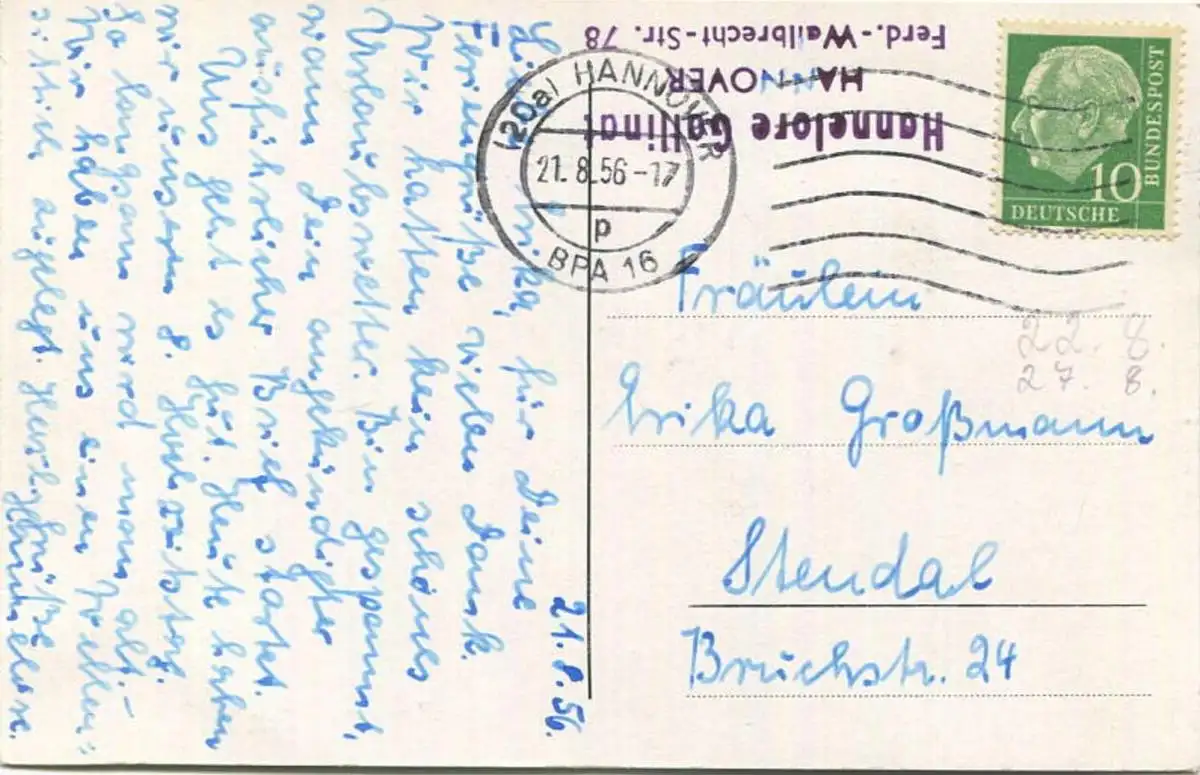 21.8.56.
Liebe Erika, für Deine
Feriengrüße vielen Dank.
Wir hatten kein schönes
Urlaubswetter. Bin gespannt,
wann Dein angekündigter
ausführlicher Brief startet.
Uns geht es gut. Heute haben
wir unsern 8. Hochzeitstag.
So langsam wird man alt. –
Wir haben uns einen Wellen=
sittich zugelegt. Herzl. Grüße
Hannelore.
Hannelore
HANNOVER
Ferd.-Wallbrecht-Str. 78
(20a) HANNOVER
21.8.56-17
p
BPA 16
10
DEUTSCHE
BUNDESPOST
Fräulein
22. 8.
27. 8.
Erika Großmann
Stendal
Bruchstr. 24